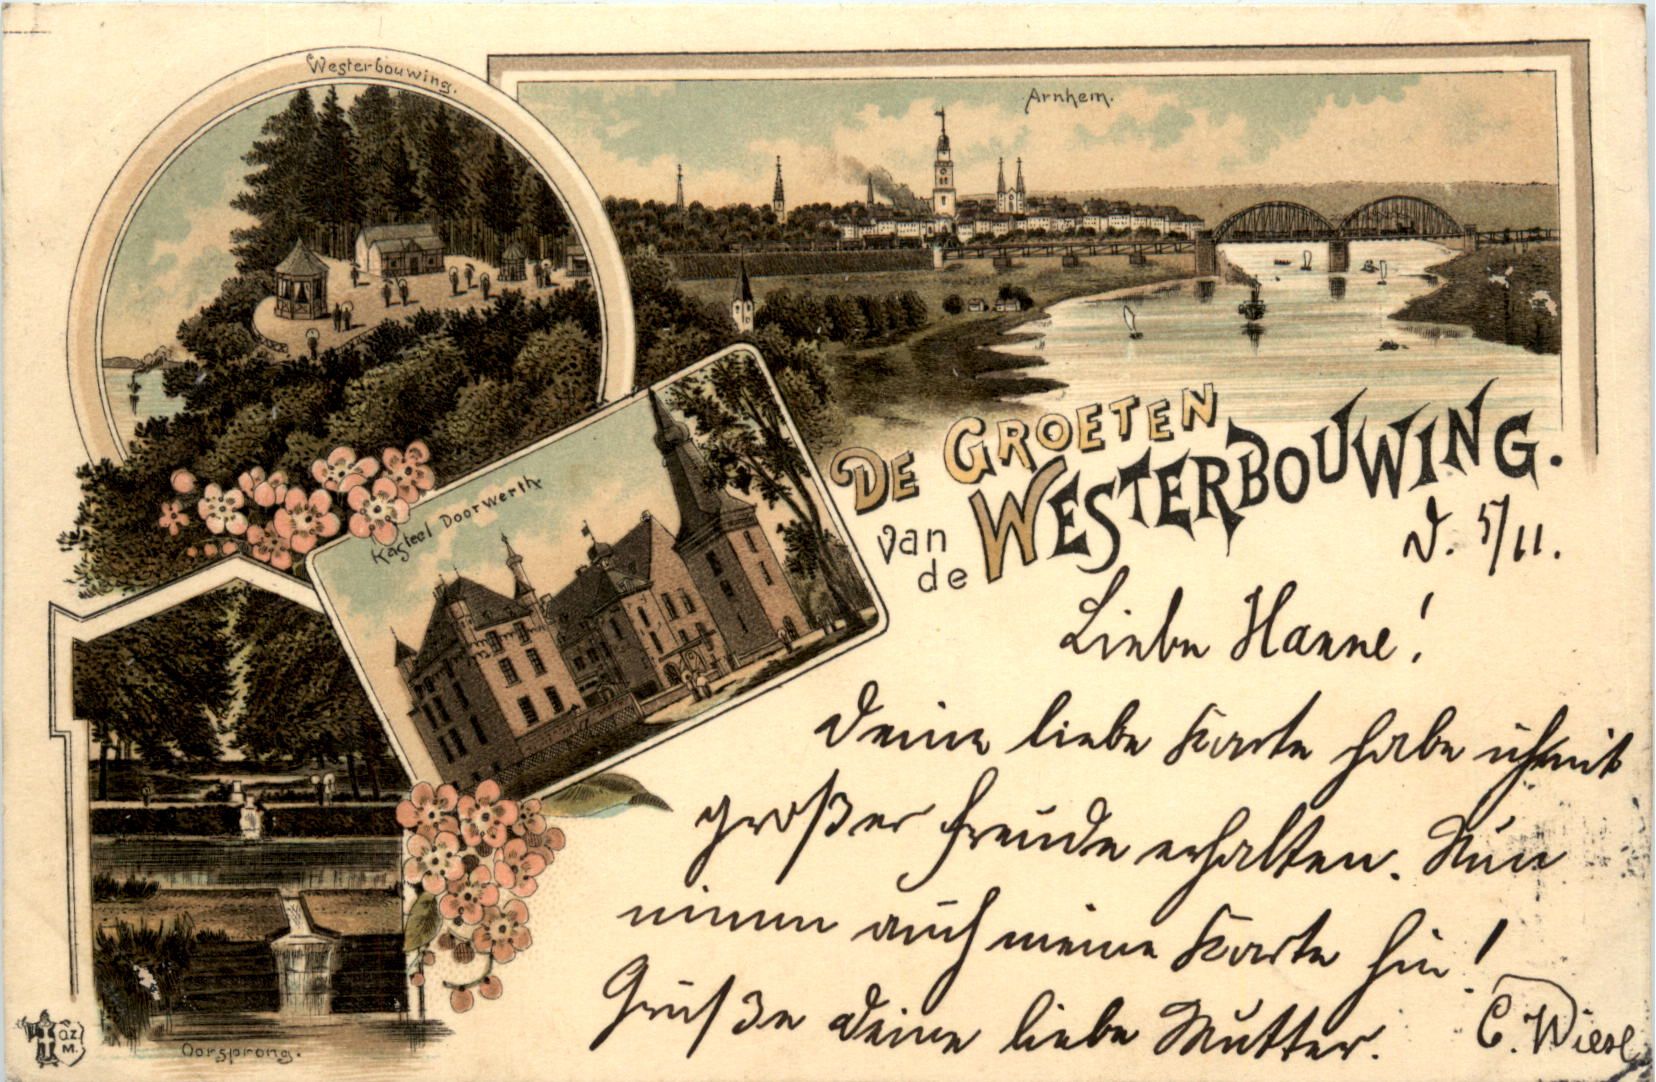 Westerbouwing.
Arnhem.
Kasteel Doorwerth
DE GROETEN
van de WESTERBOUWING.
D. 5/11.
Liebe Hanne!
Deine liebe Karte habe ich mit
großer Freude erhalten. Nun
nimm auch meine Karte hin!
Grüße Deine liebe Mutter.
C. Wiesl
Oorsprong.
O.Z.
M.